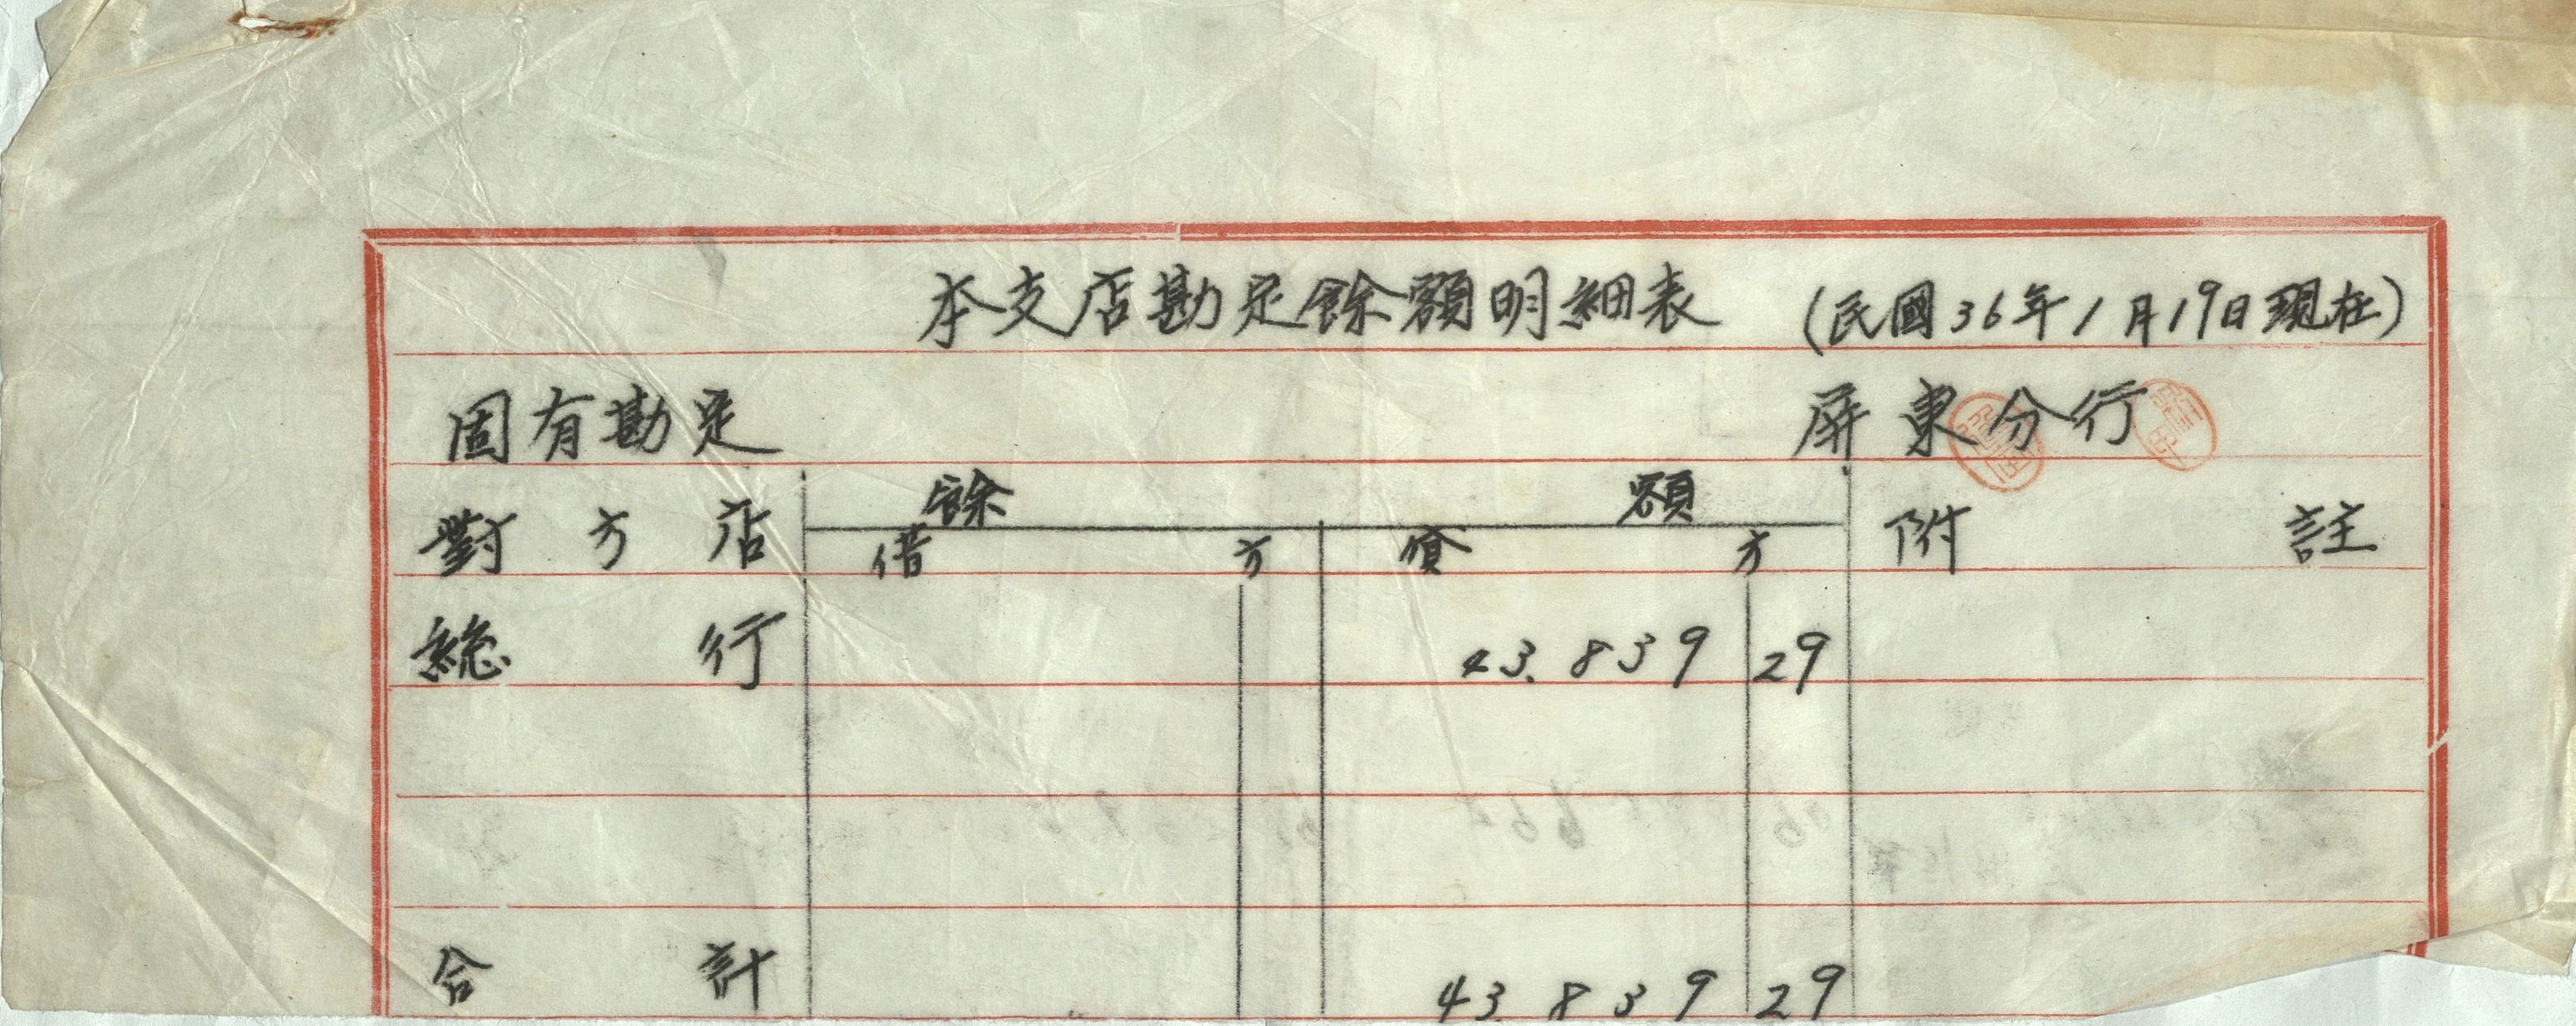 本支店勘定餘額明細表 (民國36年1月19日現在)
固有勘定 屏東分行
對方店 餘額 附註
借方 貸方
総行 43.839 29
合計 43.839 29